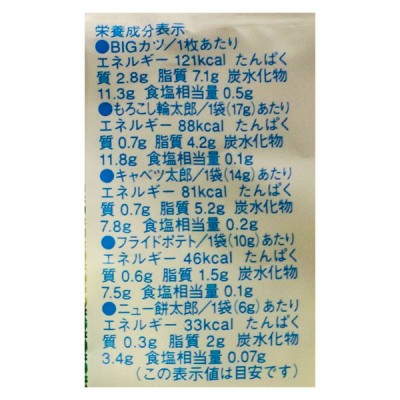 栄養成分表示
●BIGカツ／1枚あたり
エネルギー 121kcal たんぱく
質 2.8g 脂質 7.1g 炭水化物
11.3g 食塩相当量 0.5g
●もろこし輪太郎／1袋(17g)あたり
エネルギー 88kcal たんぱく
質 0.7g 脂質 4.2g 炭水化物
11.8g 食塩相当量 0.1g
●キャベツ太郎／1袋(14g)あたり
エネルギー 81kcal たんぱく
質 0.7g 脂質 5.2g 炭水化物
7.8g 食塩相当量 0.2g
●フライドポテト／1袋(10g)あたり
エネルギー 46kcal たんぱく
質 0.6g 脂質 1.5g 炭水化物
7.5g 食塩相当量 0.1g
●ニュー餅太郎／1袋(6g)あたり
エネルギー 33kcal たんぱく
質 0.3g 脂質 2g 炭水化物
3.4g 食塩相当量 0.07g
（この表示値は目安です）